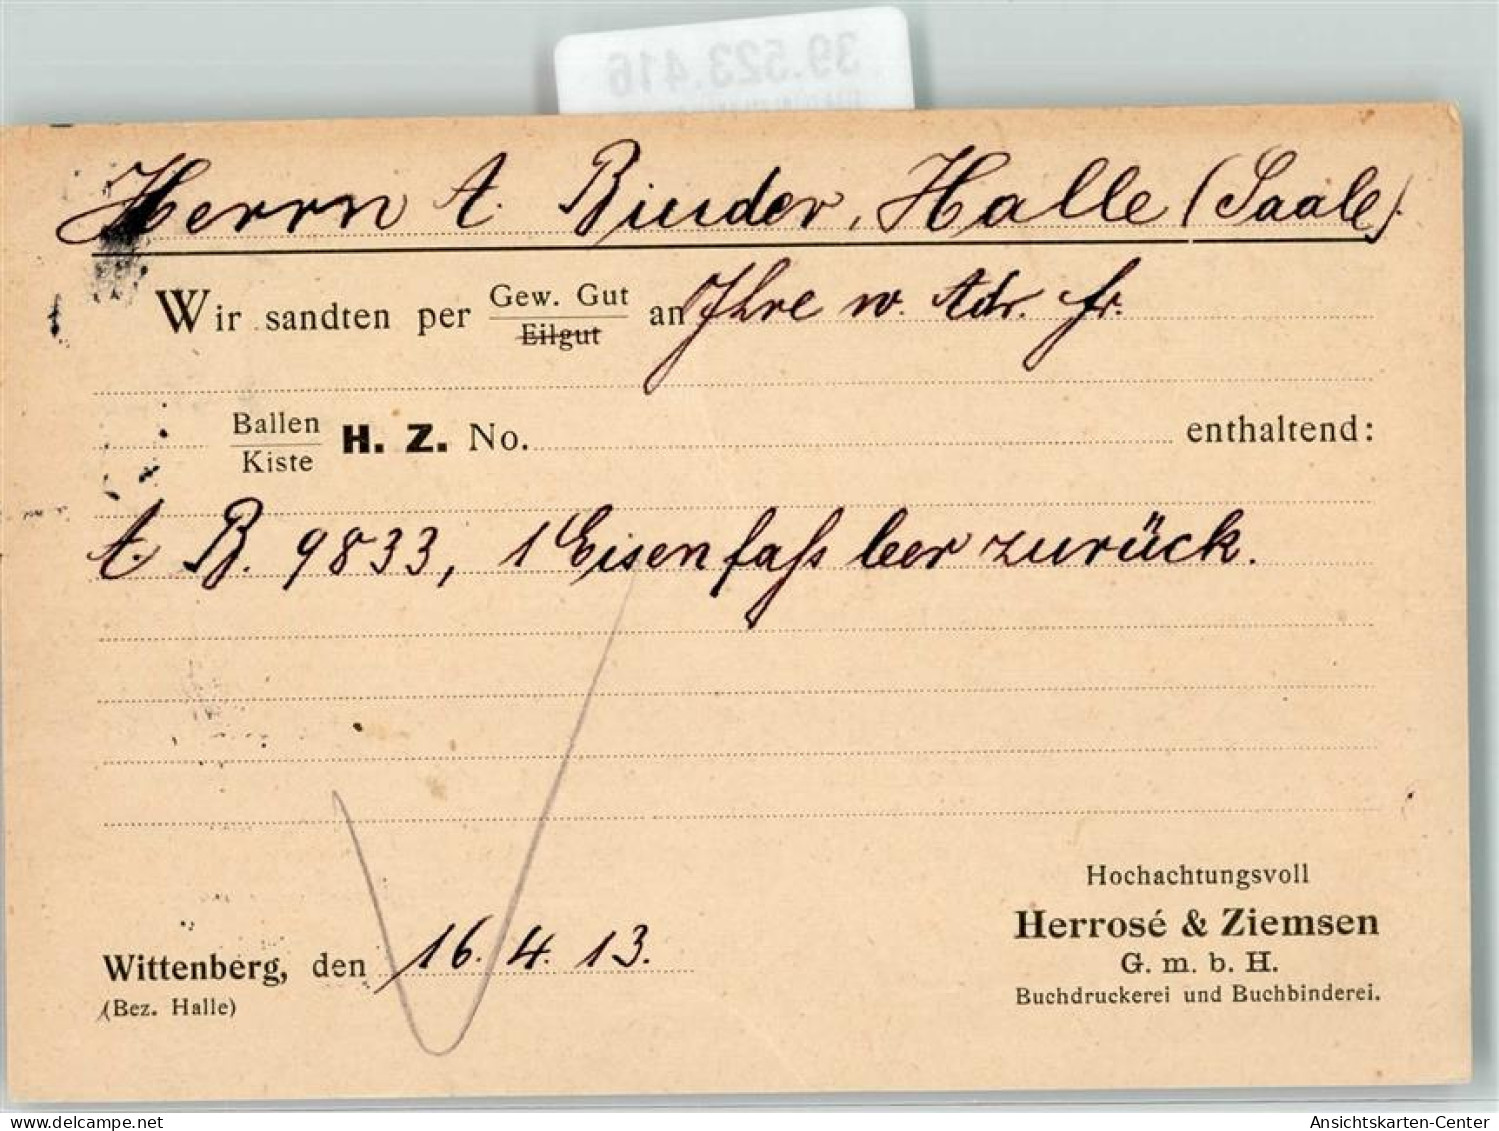 39.523.416
Herrn A. Binder, Halle (Saale).
Wir sandten per Gew. Gut an Ihre w. Adr. fr.
Eilgut
Ballen H. Z. No. enthaltend:
Kiste
A. B. 9833, 1 Eisenfaß leer zurück.
Hochachtungsvoll
Herrosé & Ziemsen
G. m. b. H.
Buchdruckerei und Buchbinderei.
Wittenberg, den 16. 4. 13.
(Bez. Halle)
delcampe.net
Ansichtskarten-Center